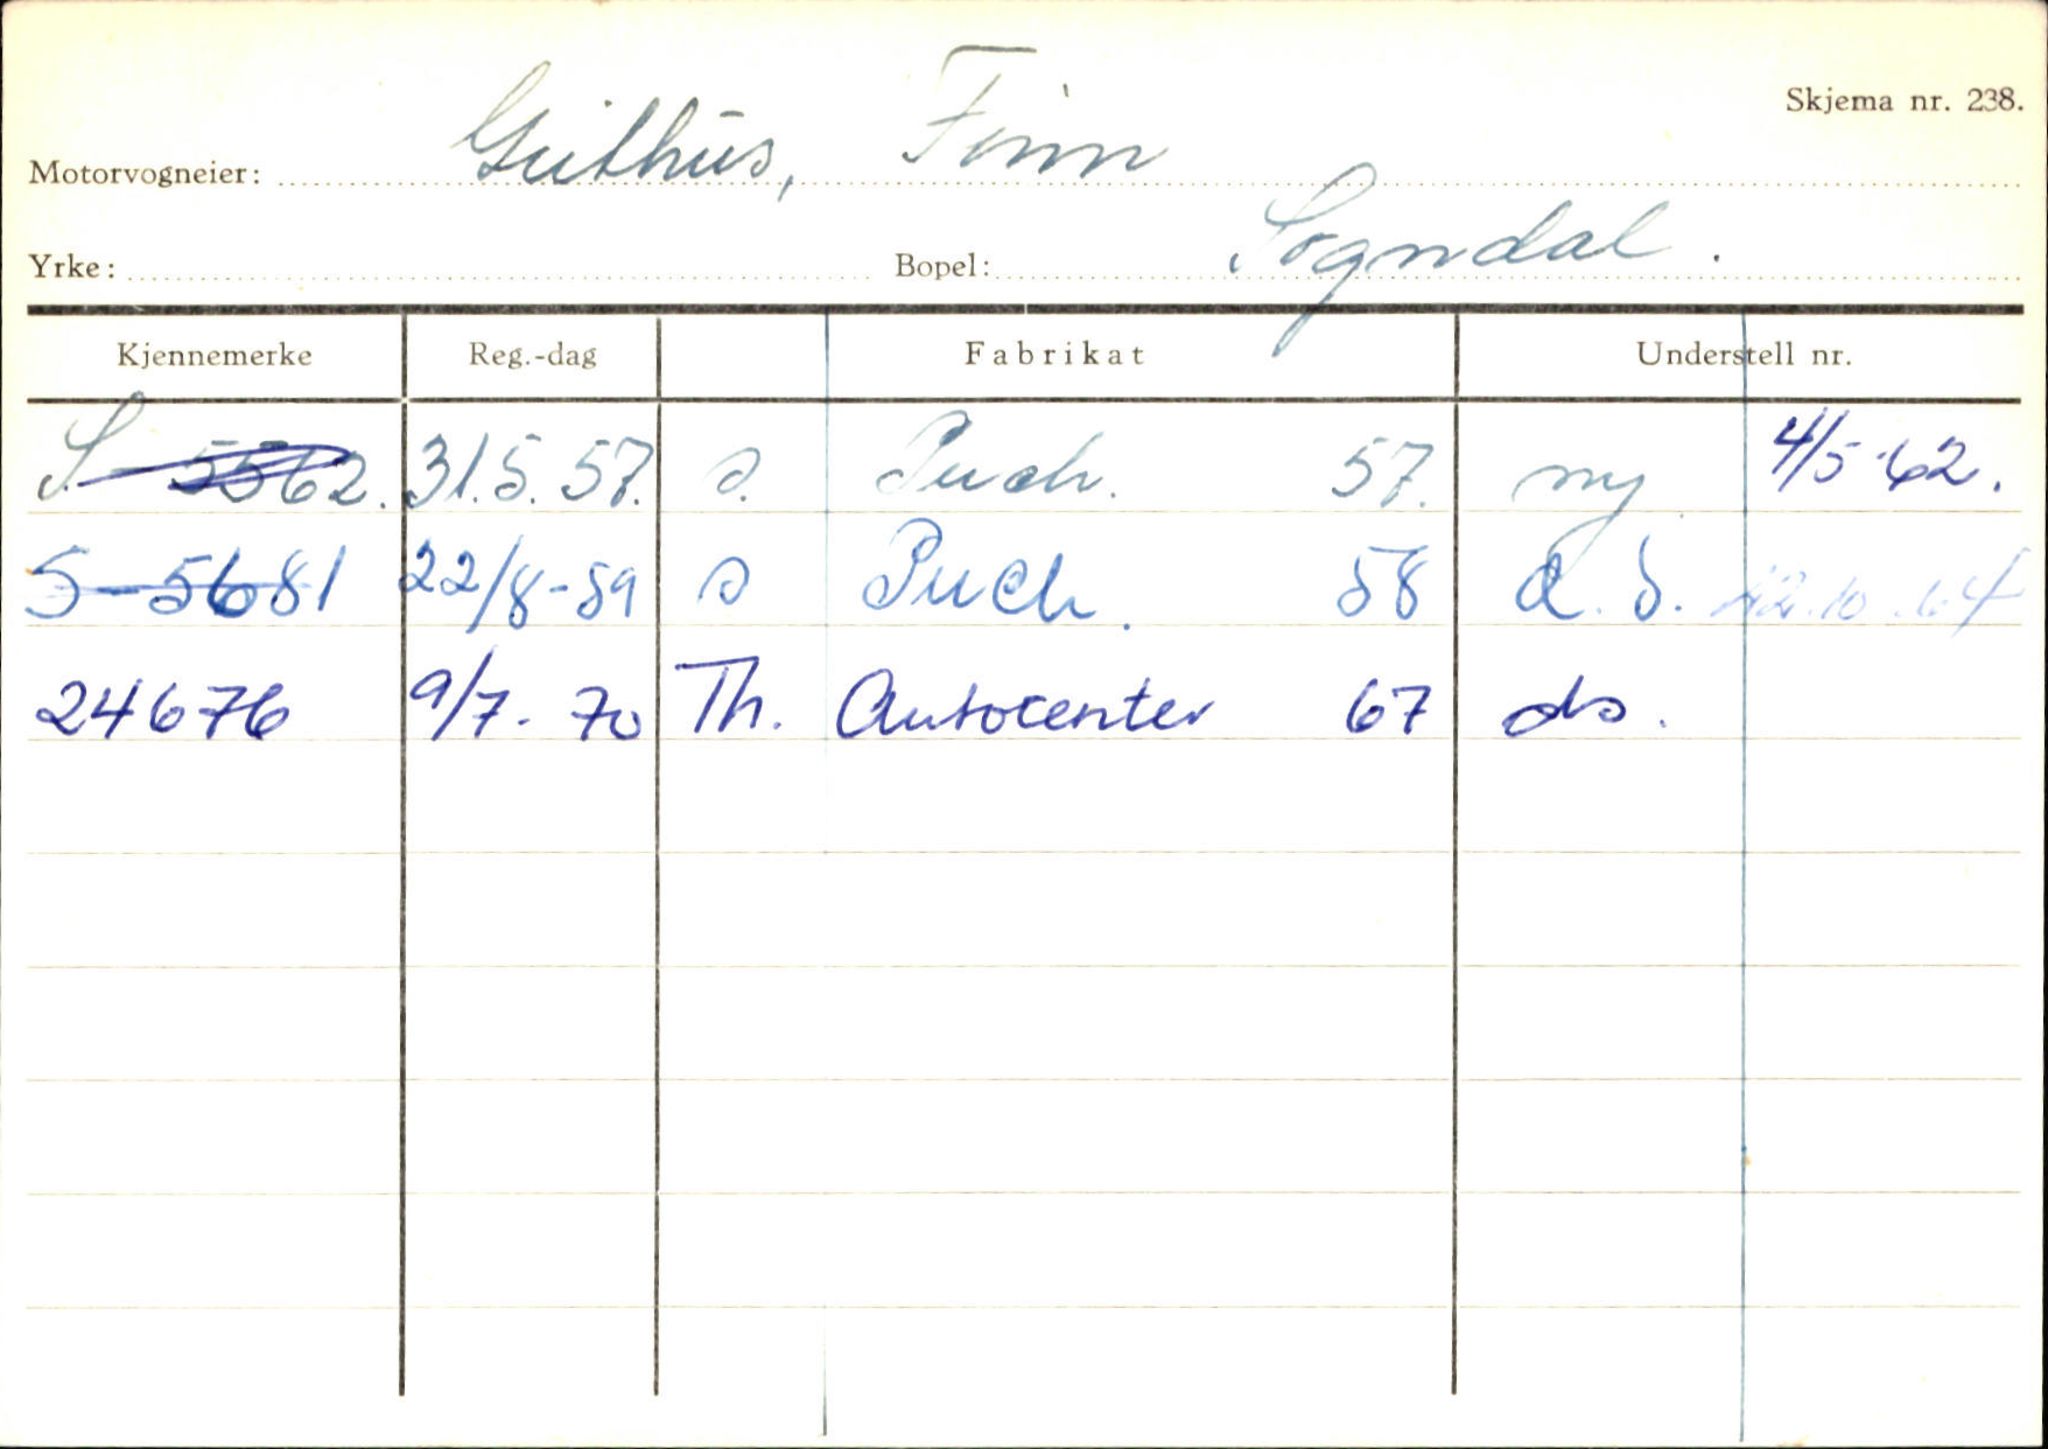 Skjema nr. 238.
Motorvogneier: Guthus, Finn
Yrke: Bopel: Sogndal.
Kjennemerke Reg.-dag Fabrikat Understell nr.
S-5562. 31.5.57. s. Puch. 57. ny 4/5-62.
S-5681 22/8-59 s Puch. 58 d.s. 22.10.64
24676 9/7-70 Th. Autocenter 67 ds.